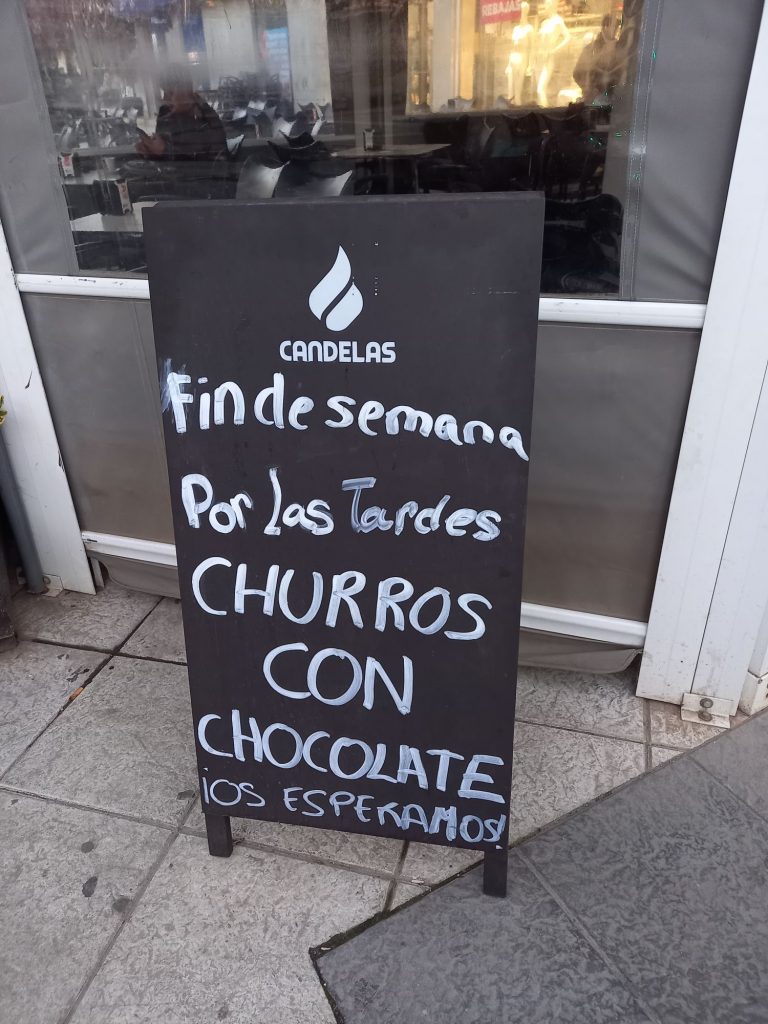 REBAJAS
CANDELAS
Fin de semana
Por las Tardes
CHURROS
CON
CHOCOLATE
¡OS ESPERAMOS!